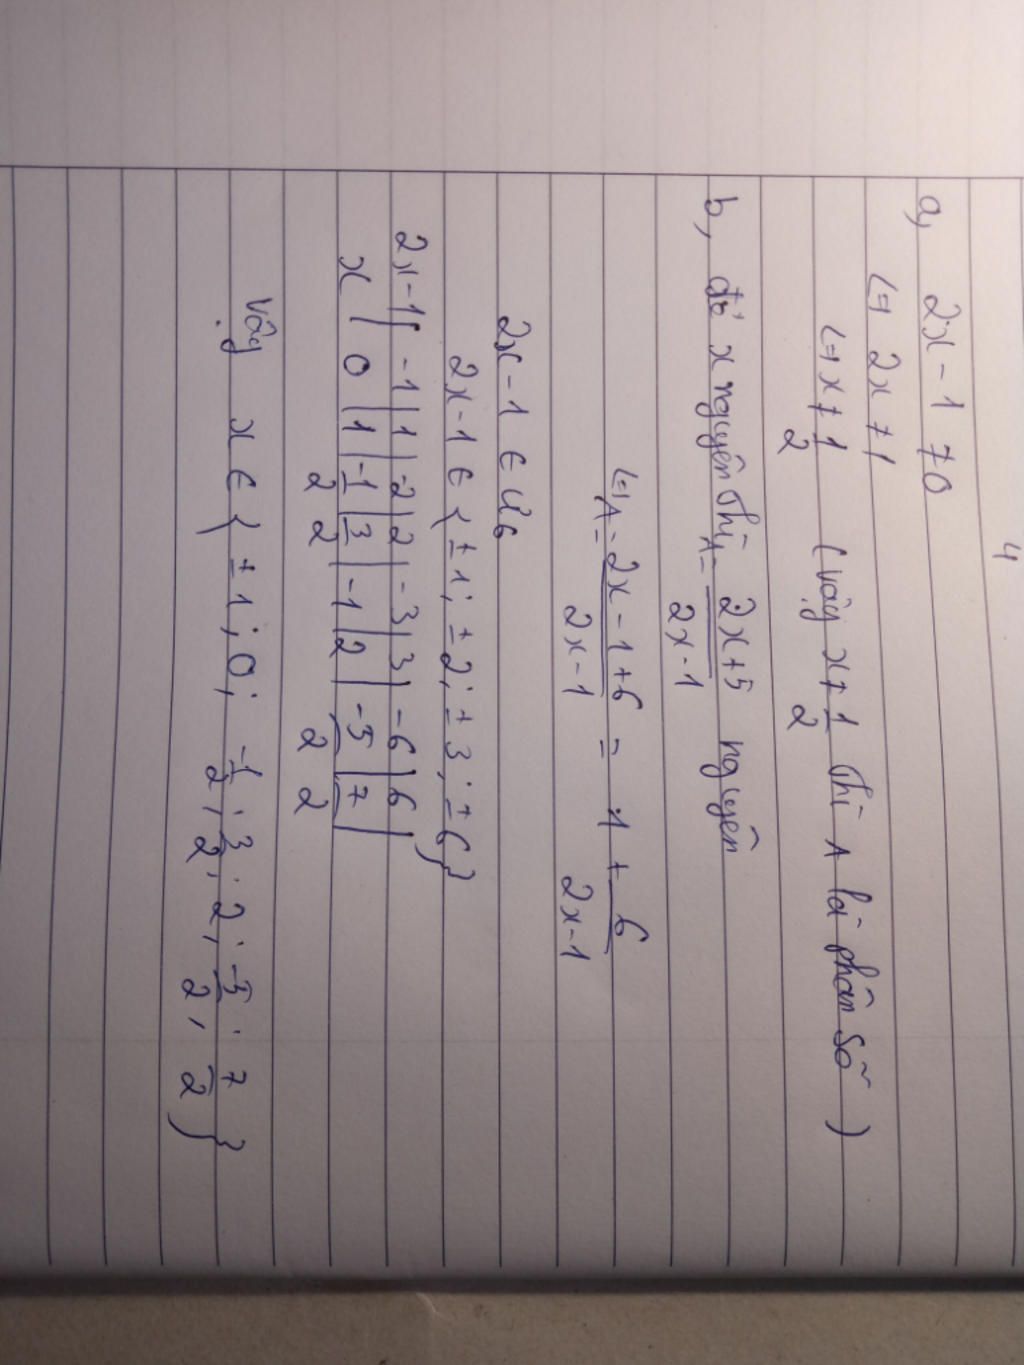 4
a, 2x - 1 ≠ 0
<=> 2x ≠ 1
<=> x ≠ 1/2 (vậy x ≠ 1/2 thì A là phân số)
b, để x nguyên thì A = 2x+5/2x-1 nguyên
<=> A = 2x - 1 + 6/2x - 1 = 1 + 6/2x - 1
2x - 1 ∈ Ư6
2x - 1 ∈ { ±1; ±2; ±3; ±6}
2x - 1 | -1 | 1 | -2 | 2 | -3 | 3 | -6 | 6 |
x | 0 | 1 | -1/2 | 3/2 | -1 | 2 | -5/2 | 7/2 |
Vậy x ∈ { ±1; 0; -1/2; 3/2; 2; -5/2; 7/2 }